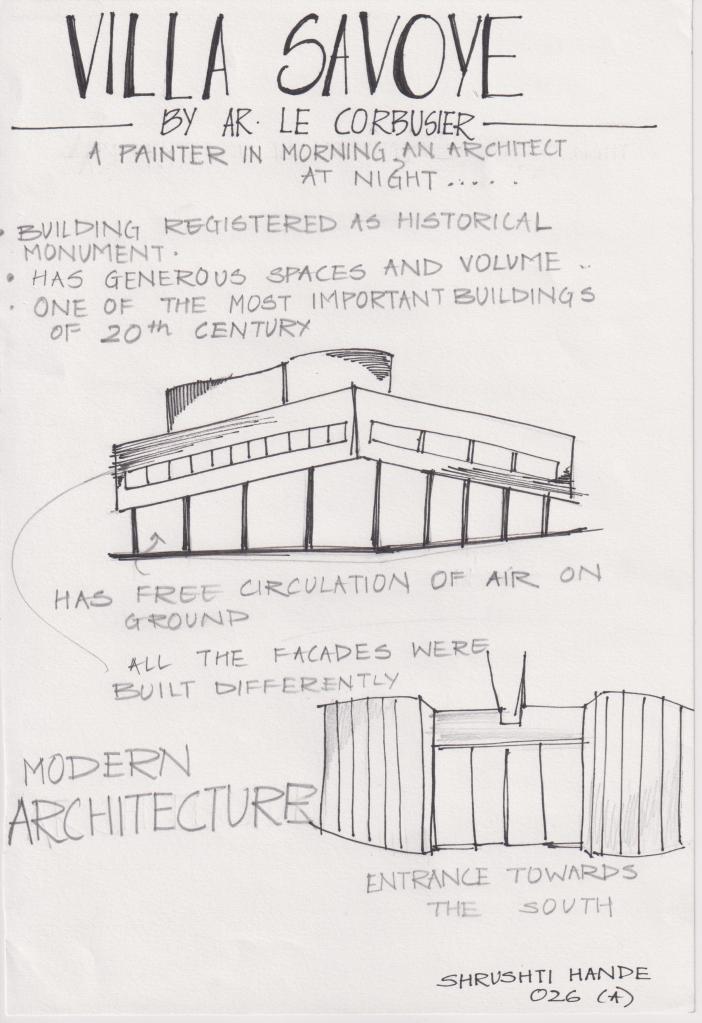 VILLA SAVOYE
BY AR. LE CORBUSIER
A PAINTER IN MORNING, AN ARCHITECT
AT NIGHT.....
• BUILDING REGISTERED AS HISTORICAL
MONUMENT.
• HAS GENEROUS SPACES AND VOLUME ..
• ONE OF THE MOST IMPORTANT BUILDINGS
OF 20th CENTURY
HAS FREE CIRCULATION OF AIR ON
GROUND
ALL THE FACADES WERE
BUILT DIFFERENTLY
MODERN
ARCHITECTURE
ENTRANCE TOWARDS
THE SOUTH
SHRUSHTI HANDE
026 (A)